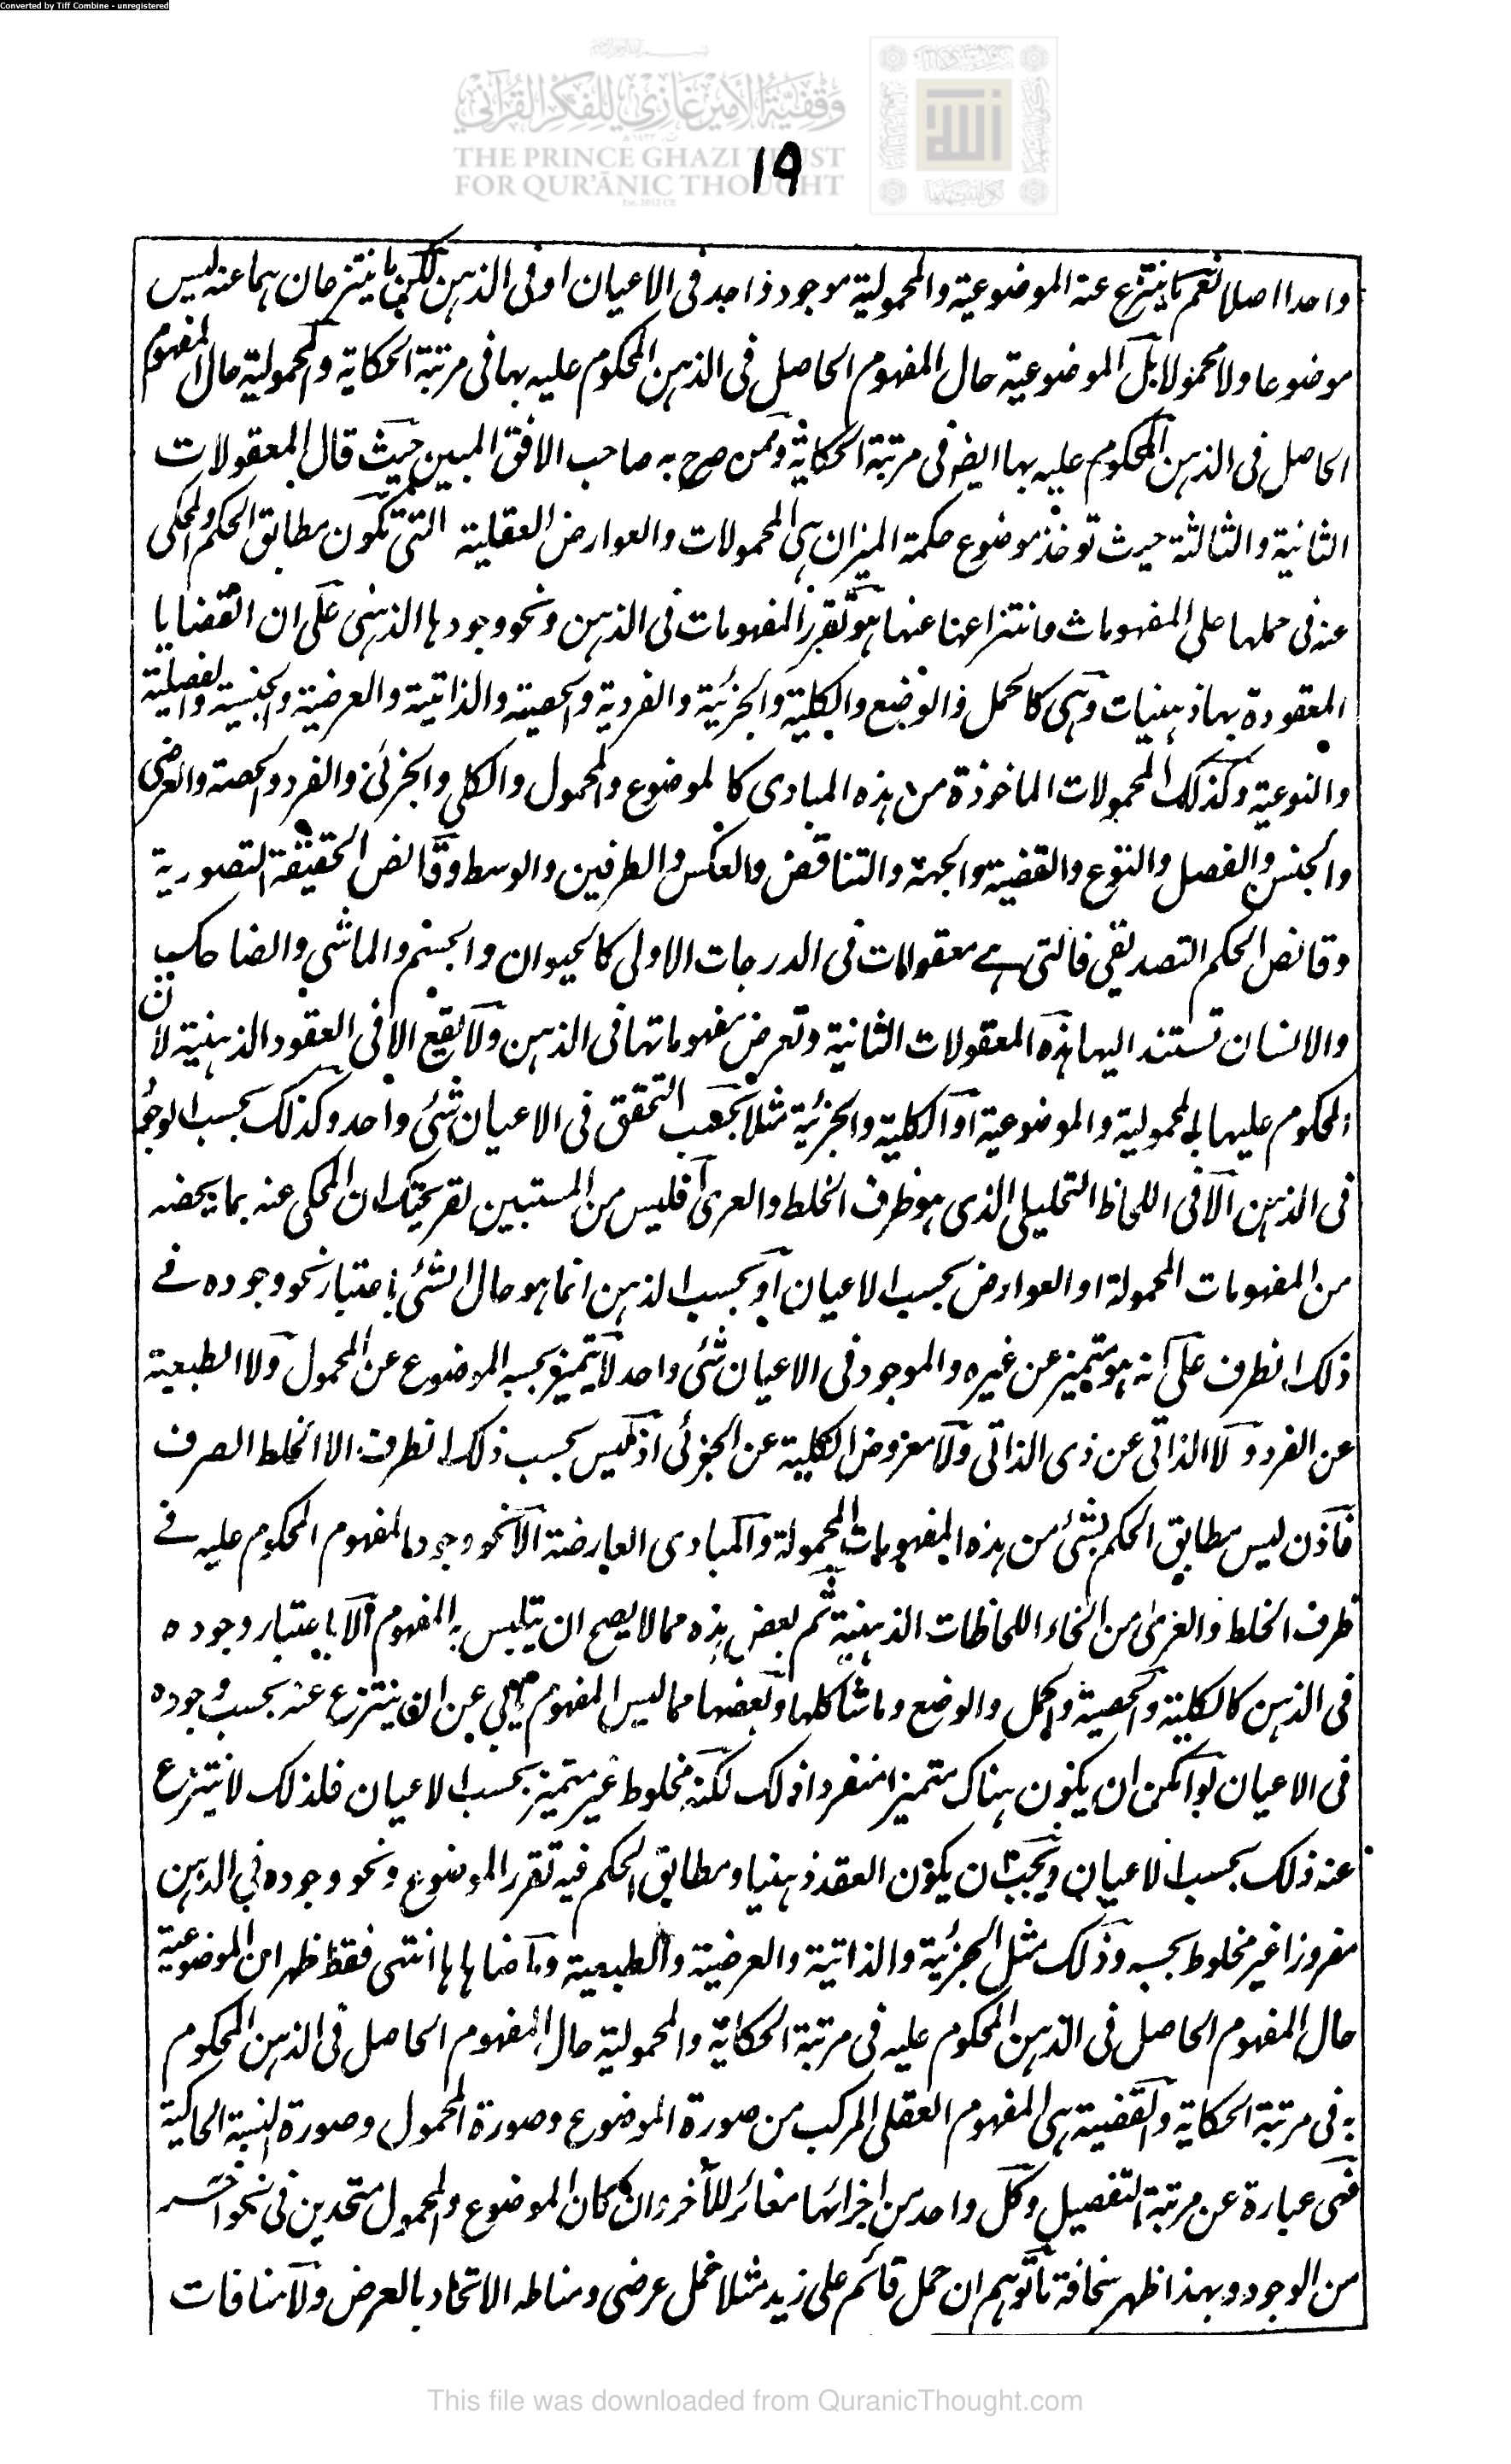 Converted by Tiff Combine - unregistered
وقفية الأمير غازي للفكر القرآني
THE PRINCE GHAZI TRUST
FOR QUR'ĀNIC THOUGHT
١٩
واحدا اصلا نعم ما ينتزع عنه الموضوعية والمحمولية موجود واحد فى الاعيان او فى الذهن لكن ما ينتزعان هما عنه ليس
موضوعا ولا محمولا بل الموضوعية حال المفهوم الحاصل فى الذهن المحكوم عليه بها فى مرتبة الحكاية والمحمولية حال المفهوم
الحاصل فى الذهن المحكوم عليه بها ايضا فى مرتبة الحكاية وممن صرح به صاحب الافق المبين حيث قال المعقولات
الثانية والثالثة حيث توخذ موضوع حكمة الميزان هى المحمولات والعوارض العقلية التى تكون مطابق الحكم والمحكى
عنه فى حملها على المفهومات وانتزاعها عنها هو تقرر المفهومات فى الذهن ونحو وجودها الذهنى على ان القضايا
المعقودة بها ذهنيات وهى كالحمل والوضع والكلية والجزئية والفردية والحصية والذاتية والعرضية والجنسية والفصلية
والنوعية وكذلك المحمولات الماخوذة من هذه المبادى كالموضوع والمحمول والكلى والجزئى والفرد والحصة والعرضى
والجنس والفصل والنوع والقضية والجهة والتناقض والعكس والطرفين والوسط وقائض الحقيقة التصورية
وقائض الحكم التصديقى فالتى هے معقولات فى الدرجات الاولى كالحيوان والجسم والماشى والضاحك
والانسان تستند اليها هذه المعقولات الثانية وتعرض مفهوماتها فى الذهن ولا يقع الا فى العقود الذهنية لان
المحكوم عليها بالمحمولية والموضوعية او الكلية والجزئية مثلا بحسب التحقق فى الاعيان شئ واحد وكذلك بحسب الوجود
فى الذهن الا فى اللحاظ التحليلى الذى هو ظرف الخلط والعرى أفليس من المستبين لقريحتك ان المحكى عنه بما يحضه
من المفهومات المحمولة او العوارض بحسب الاعيان او بحسب الذهن انما هو حال الشئ باعتبار نحو وجوده فے
ذلك الظرف على انه هو متميز عن غيره والموجود فى الاعيان شئ واحد لا يتميز بحسبه الموضوع عن المحمول ولا الطبيعية
عن الفرد ولا الذاتى عن ذى الذاتى ولا معروض الكلية عن الجزئى اذ ليس بحسب ذلك الظرف الا الخلط الصرف
فاذن ليس مطابق الحكم بشئ من هذه المفهومات المحمولة والمبادى العارضة الا نحو وجود المفهوم المحكوم عليه فے
ظرف الخلط والعرى من انحاء اللحاظات الذهنية ثم بعض هذه مما لا يصح ان يتلبس به المفهوم الا باعتبار وجوده
فى الذهن كالكلية والحصية والحمل والوضع وما شاكلها وبعضها مما ليس المفهوم يابى عن ان ينتزع عنه بحسب وجوده
فى الاعيان لو امكن ان يكون هناك متميزا منفردا ذلك لكنه مخلوط غير متميز بحسب الاعيان فلذلك لا ينتزع
عنه ذلك بحسب الاعيان ويجب ان يكون العقد ذهنيا ومطابق الحكم فيه تقرر الموضوع ونحو وجوده فى الذهن
مفروزا غير مخلوط بحسبه وذلك مثل الجزئية والذاتية والعرضية والطبيعية وما ضاهاها انتهى فقط ظهر ان الموضوعية
حال المفهوم الحاصل فى الذهن المحكوم عليه فى مرتبة الحكاية والمحمولية حال المفهوم الحاصل فى الذهن المحكوم
به فى مرتبة الحكاية والقضية هى المفهوم العقلى المركب من صورة الموضوع وصورة المحمول وصورة النسبة الحاكية
فهى عبارة عن مرتبة التفصيل وكل واحد من اجزائها مغائر للآخر وان كان الموضوع والمحمول متحدين فى نحو آخر
من الوجود وبهذا ظهر سخافة ما توهم ان حمل قائم على زيد مثلا حمل عرضى ومناطه الاتحاد بالعرض ولا منافات
This file was downloaded from QuranicThought.com